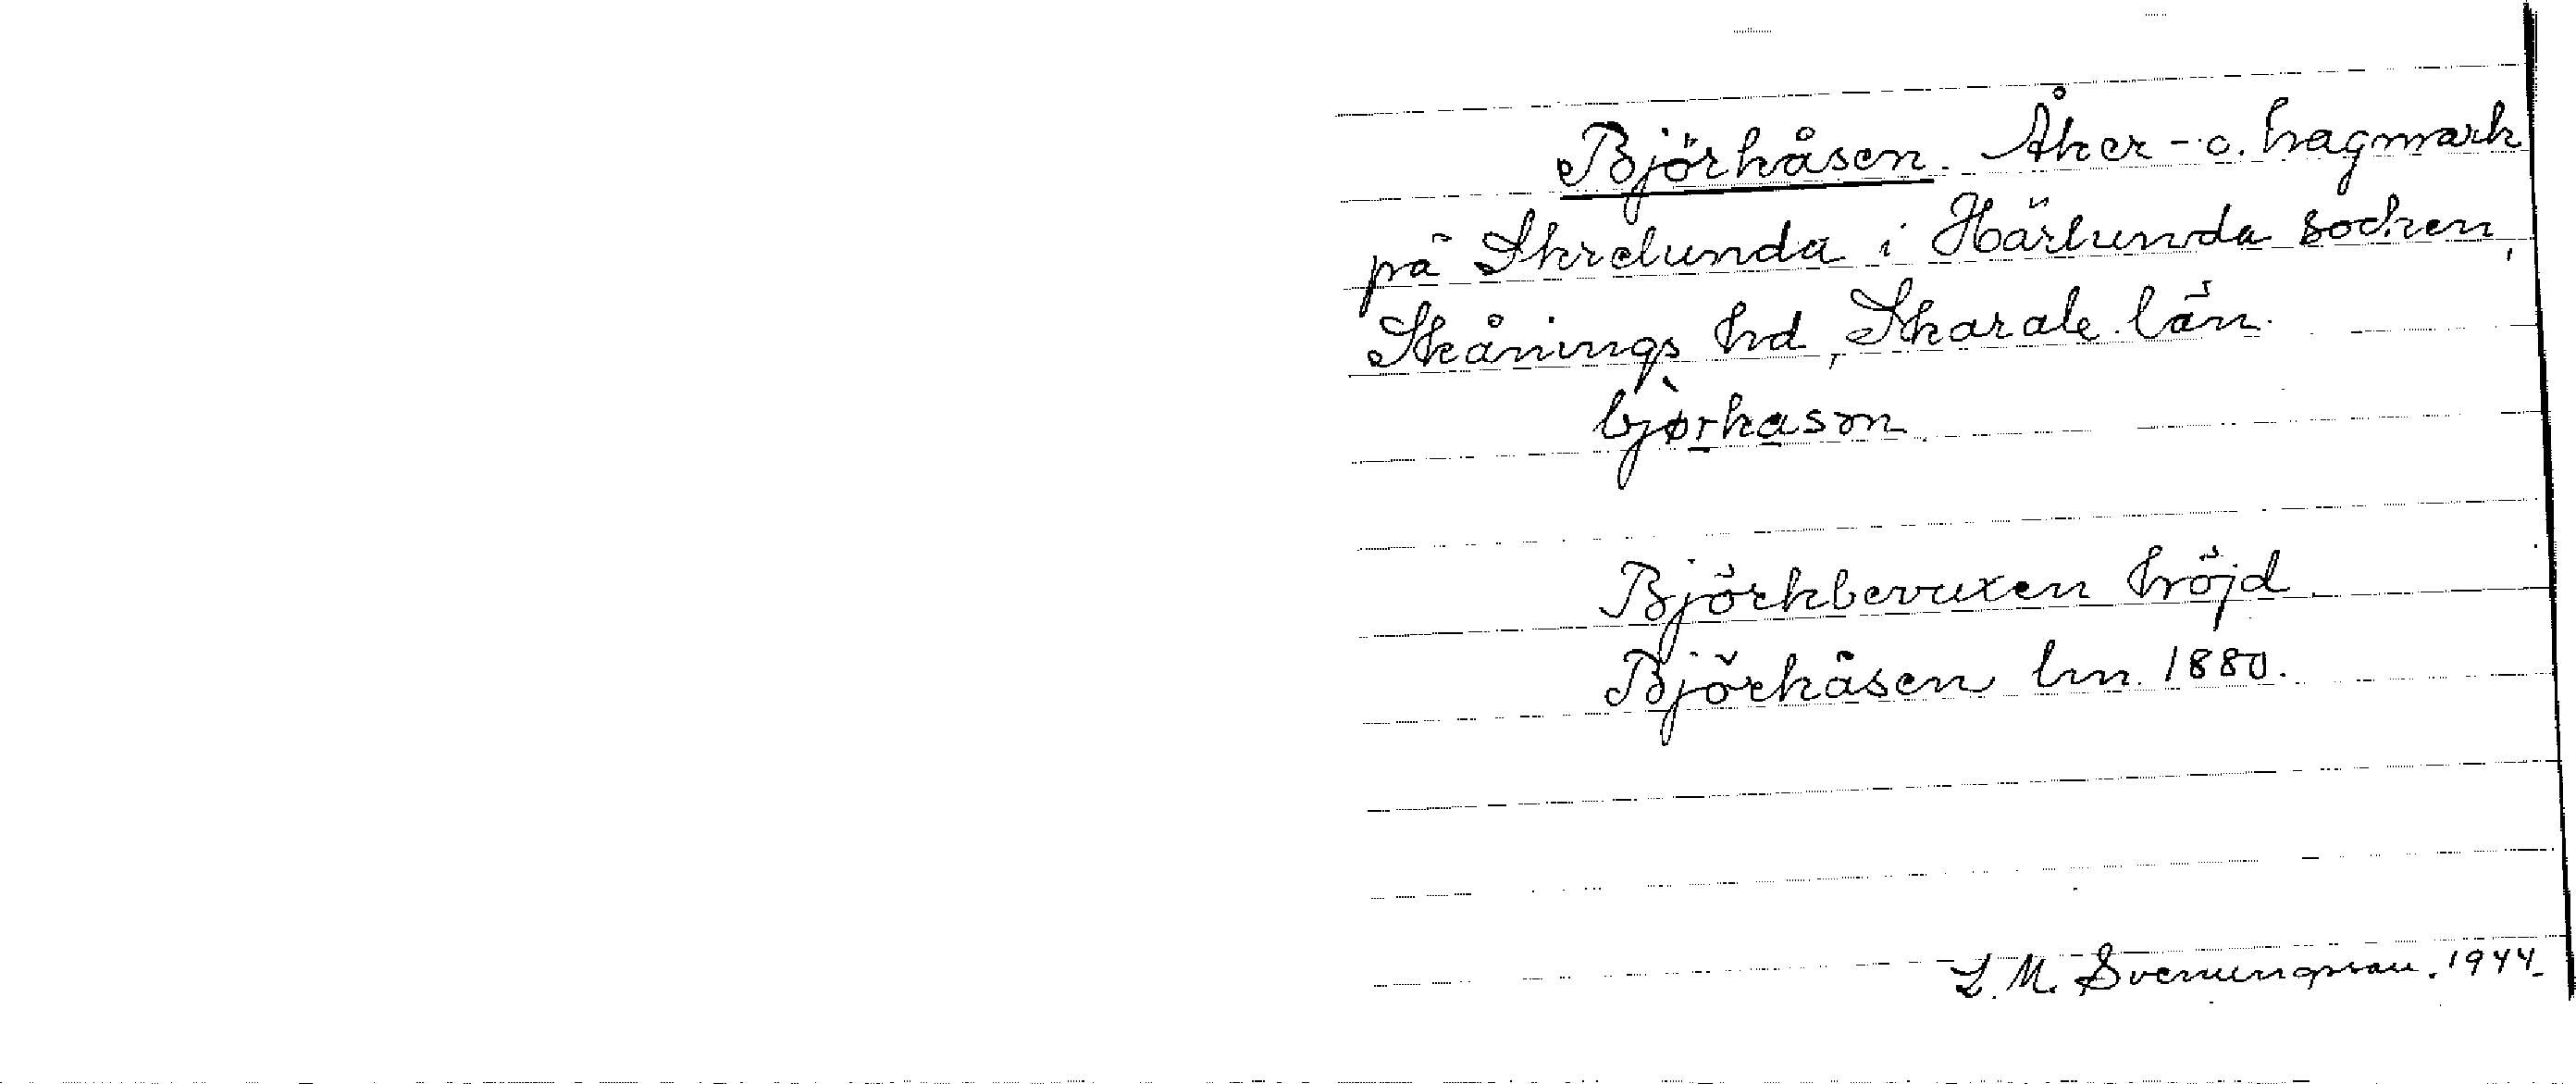 Björkåsen. Åker- o. hagmark
på Skrelunda i Härlunda socken,
Skånings hd, Skarab. län.
bjø̀rkasən
Björkbevuxen höjd
Björkåsen lm 1880.
L. M. Svenungsson. 1944.